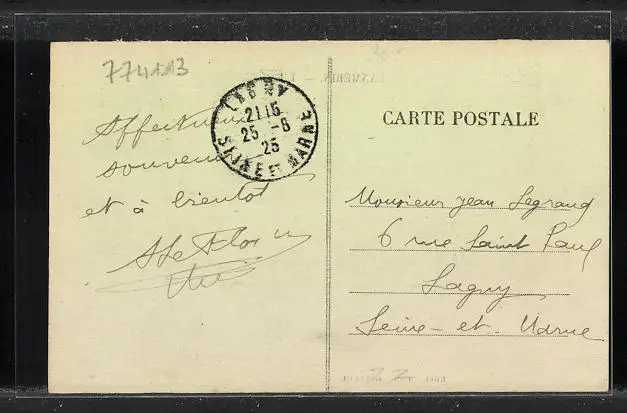 774113
LAGNY
21 15
25 -8
25
SEINE ET MARNE
Affectueux
souvenir
et à bientôt
CARTE POSTALE
Monsieur Jean Legrand
6 rue Saint Paul
Lagny
Seine-et-Marne